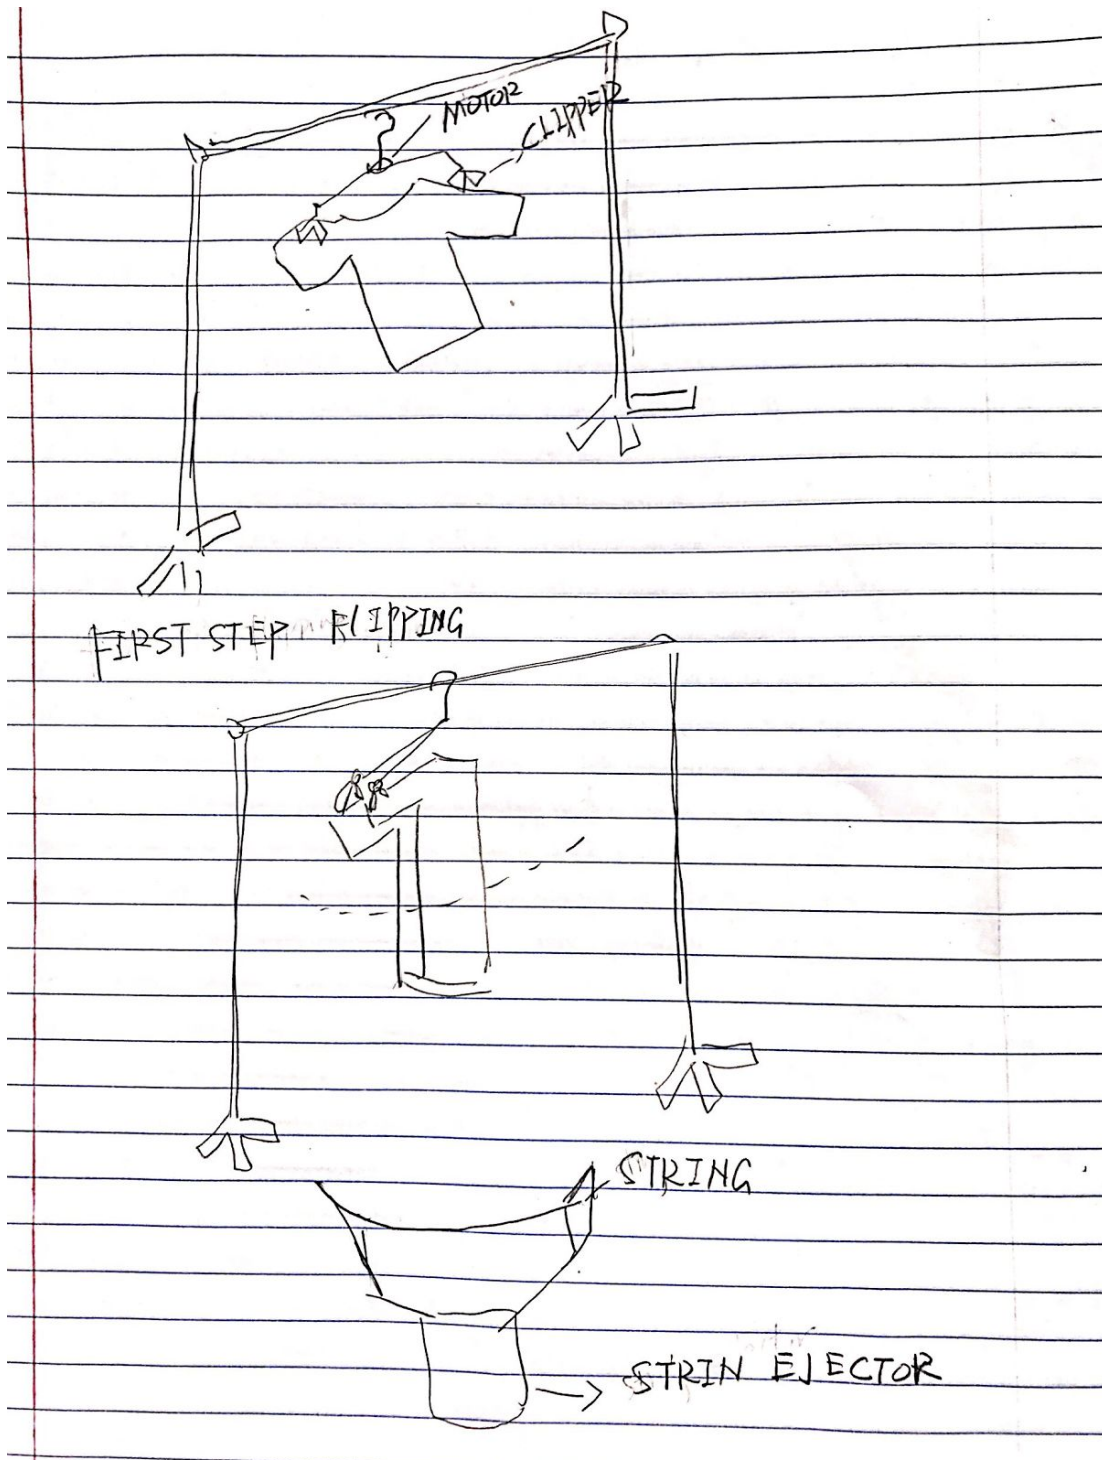 MOTOR
CLIPPER
FIRST STEP FLIPPING
STRING
STRIN EJECTOR